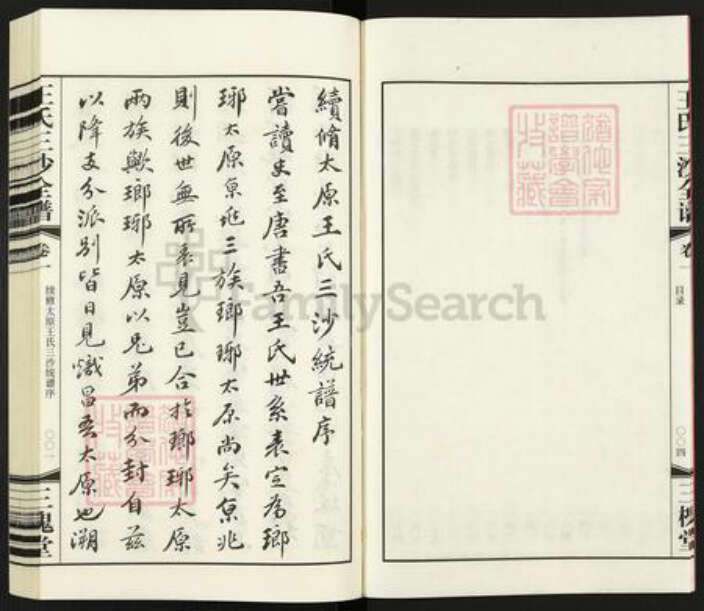 續脩太原王氏三沙統譜序
嘗讀史至唐書吾王氏世系表定為瑯
琊太原京兆三族瑯琊太原尚矣京兆
則後世無所表見豈已合於瑯琊太原
兩族歟瑯琊太原以兄弟而分封自茲
以降支分派別皆日見熾昌吾太原也溯
王氏三沙全譜
卷一
续修太原王氏三沙统谱序
〇〇一
三槐堂
王氏三沙全譜
卷一
目录
〇〇四
三槐堂
FamilySearch